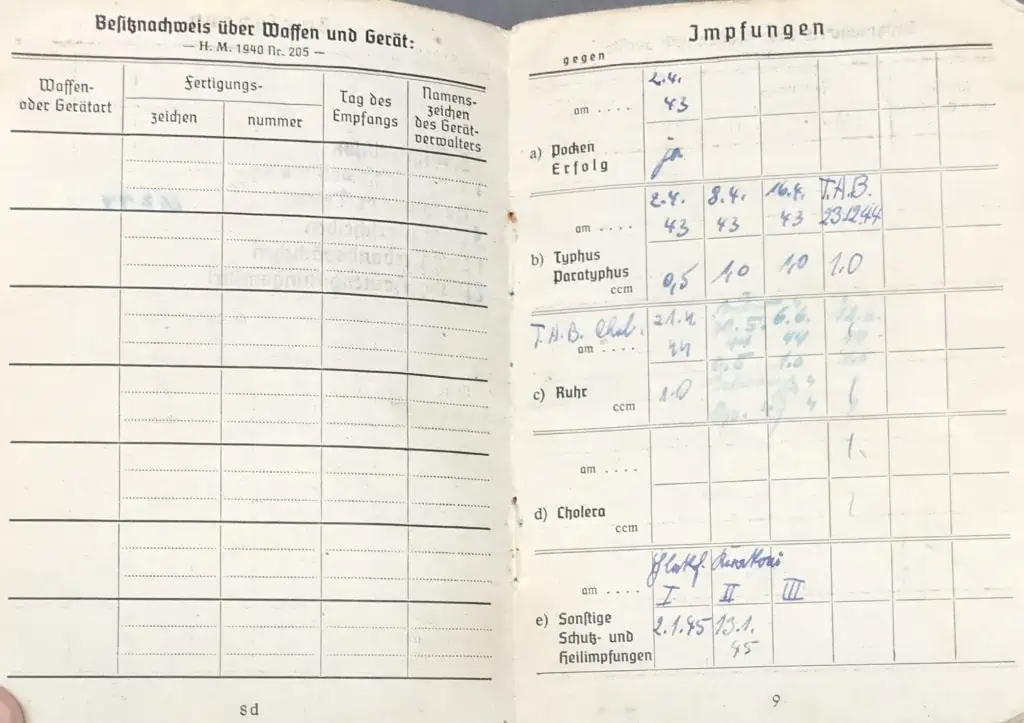 Besitznachweis über Waffen und Gerät:
— H. M. 1940 Nr. 205 —
Waffen- oder Gerätart
Fertigungs-
zeichen
nummer
Tag des Empfangs
Namenszeichen des Gerätverwalters
8d
Impfungen
gegen
2.4.
am .... 43
a) Pocken
Erfolg ja
2.4. 8.4. 16.4. T.A.B.
am .... 43 43 43 23.12.44
b) Typhus
Paratyphus
ccm 0,5 1,0 1,0 1.0
T.A.B. Chol. 21.4 6.6.
am .... 44 44
1.0
c) Ruhr
ccm 1.0
am ....
d) Cholera
ccm
am .... I II III
e) Sonstige 2.1.45 13.1.
Schutz- und 45
Heilimpfungen
9